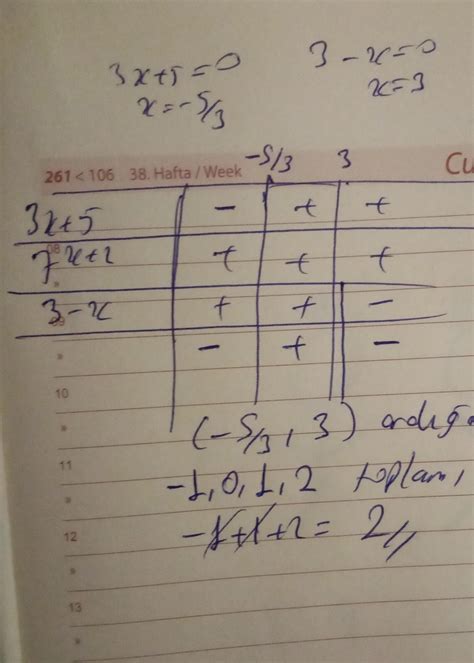 3x+5=0 3-x=0
x=-5/3 x=3
261 < 106 38. Hafta / Week -5/3 3 Cu
3x+5 - + +
08
7^{x+2} + + +
3-x + + -
09
- + -
10
(-5/3, 3)
11
-1,0,1,2 toplamı
12 -1+1+2=2
13